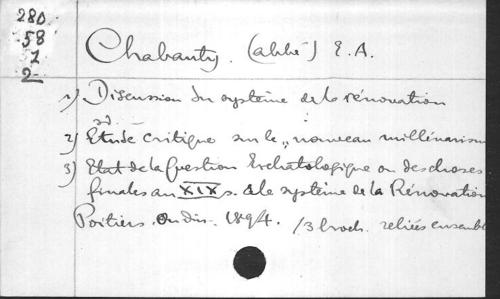 280
58
1
2
Chabauty. (abbé) E. A.
1) Discussion du système de la rénovation
2) Etude critique sur le „nouveau millénarisme
3) Etat de la Question Eschatologique ou des choses
finales au XIX s. & le système de la Rénovation
Poitiers. Oudin. 1894. /3 broch. reliées ensemble